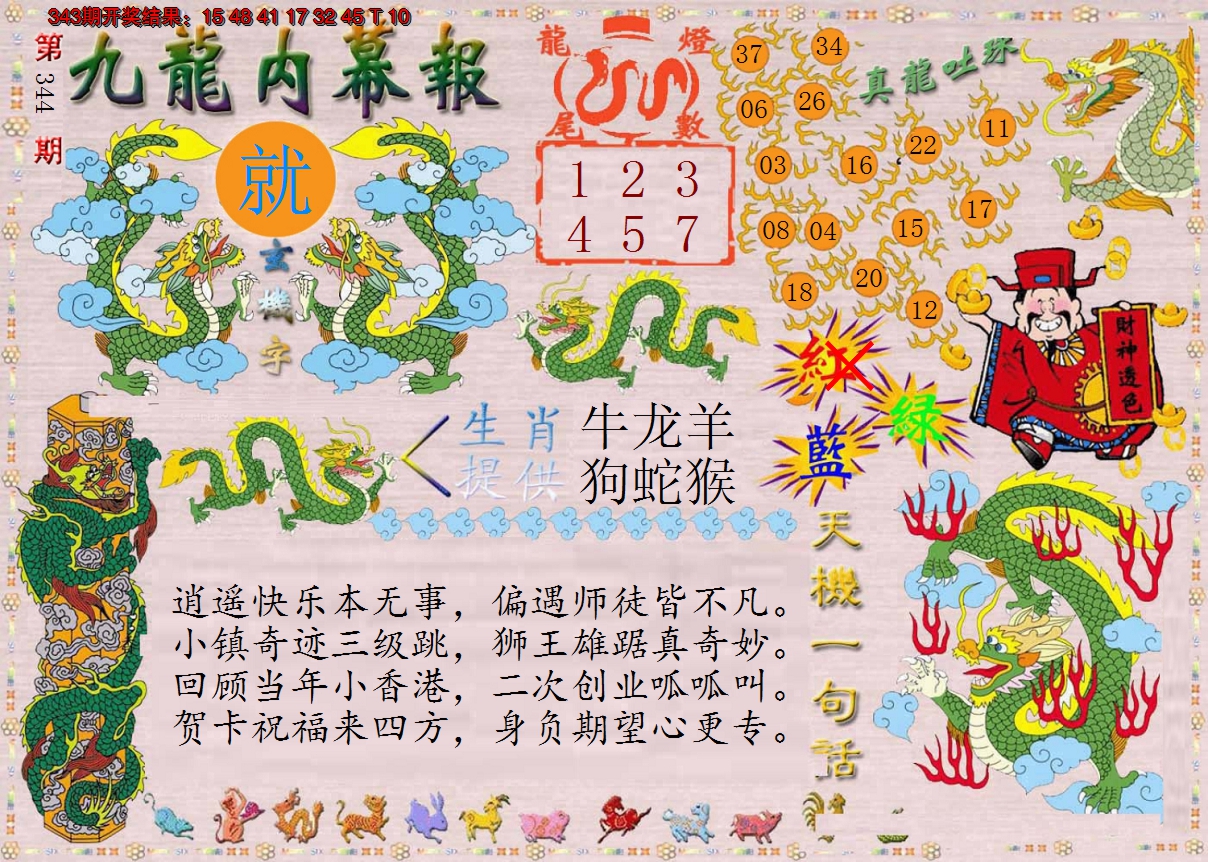 343期开奖结果：15 48 41 17 32 45 T 10
第344期
九龍内幕報
就
玄機字
龍燈
尾數
1 2 3
4 5 7
真龍吐珠
37 34
06 26
03 16 22 11
08 04 15 17
18 20 12
財神透色
紅
綠
藍
生肖 牛龙羊
提供 狗蛇猴
天機一句话
逍遥快乐本无事，偏遇师徒皆不凡。
小镇奇迹三级跳，狮王雄踞真奇妙。
回顾当年小香港，二次创业呱呱叫。
贺卡祝福来四方，身负期望心更专。